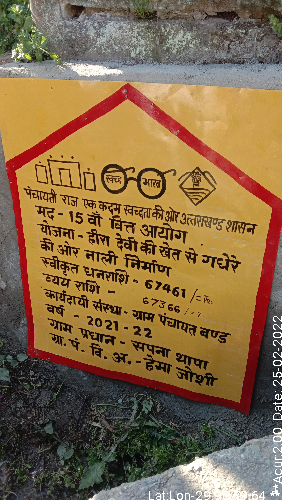 स्वच्छ भारत
पंचायती राज एक कदम स्वच्छता की ओर उत्तराखण्ड शासन
मद - 15 वाँ वित्त आयोग
योजना - हीरा देवी की खेत से गधेरे
की ओर नाली निर्माण
स्वीकृत धनराशि - 67461/=रु०
व्यय राशि - 67366/=
कार्यदायी संस्था - ग्राम पंचायत बण्ड
वर्ष - 2021-22
ग्राम प्रधान - सपना थापा
ग्रा. पं. वि. अ. - हेमा जोशी
Lat:Lon-29
Acur:2.00 Date: 25-02-2022